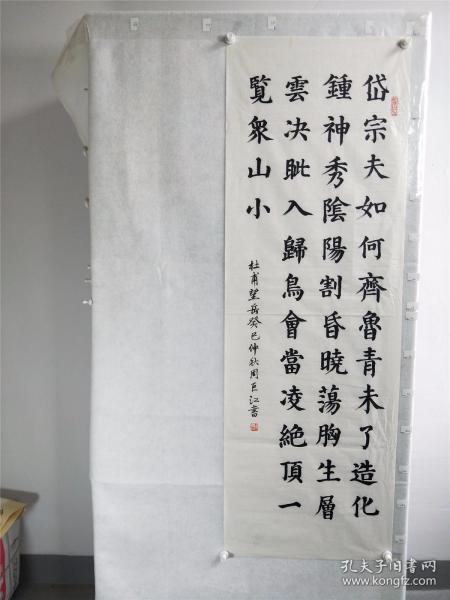 岱宗夫如何齊魯青未了造化
鍾神秀陰陽割昏曉蕩胸生層
雲决眦入歸鳥會當凌絕頂一
覽衆山小
杜甫望岳癸巳仲秋周巨江書
孔夫子旧书网
www.kongfz.com